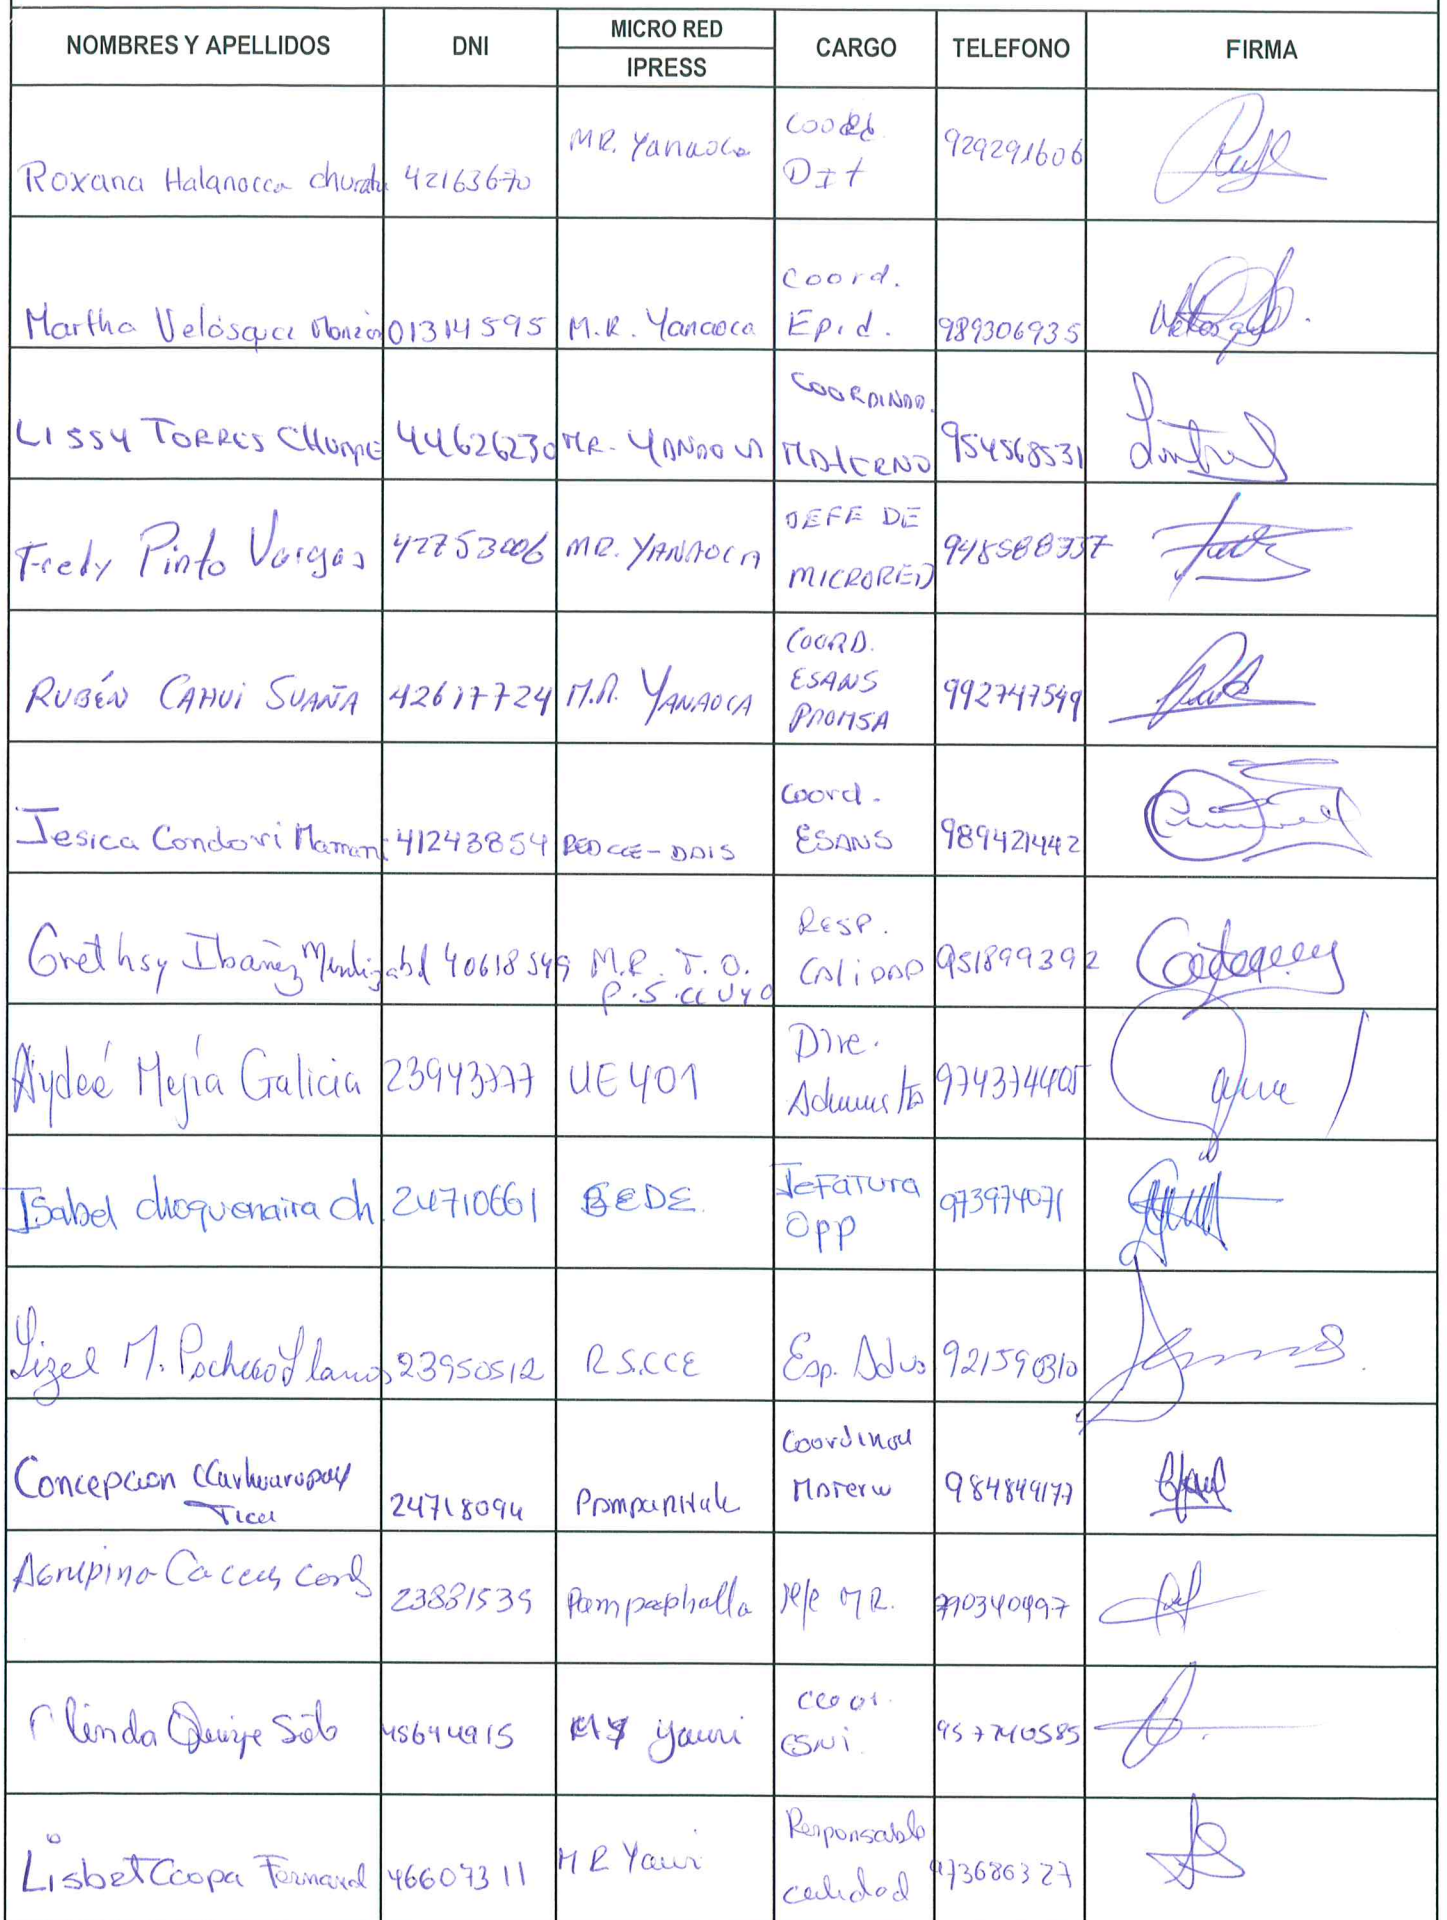 NOMBRES Y APELLIDOS DNI MICRO RED CARGO TELEFONO FIRMA
IPRESS
Roxana Halanocca Churata 42163670 MR. Yanaoca Coord. DIT 929291606
Martha Velásquez Monzón 01314595 M.R. Yanaoca Coord. Epid. 989306935
LISSY TORRES CHUMPE 44626230 MR. YANAOCA COORDINAD. MATERNO 954568531
Fredy Pinto Vargas MR. YANAOCA JEFE DE MICRORED
RUBÉN CAHUI SUAÑA 42617724 M.R. YANAOCA COORD. ESANS PROMSA 992747549
Jesica Condori Mamani 41243854 REDCCE-DAIS Coord. ESANS 989421442
Grethsy Ibañez Mendizabal 40618549 M.R. T.O. RESP. CALIDAD 951899392
P.S. CCUYO
Aydeé Mejía Galicia 23943777 UE401 Dire. 974374405
Isabel Choquenaira Ch. 24710661 SEDE Jefatura OPP 973974071
Lizel M. Pacheco Llanos 23950512 R.S.CCE Esp. 921590310
Concepcion 24718094 984849177
Ticu
23881539 Pampaphalla Jefe MR. 990340497
Quispe Soto 45644915 yauri ESNI 957740585
Lisbet Ccopa 46607311 MR Yauri Responsable calidad 973686327